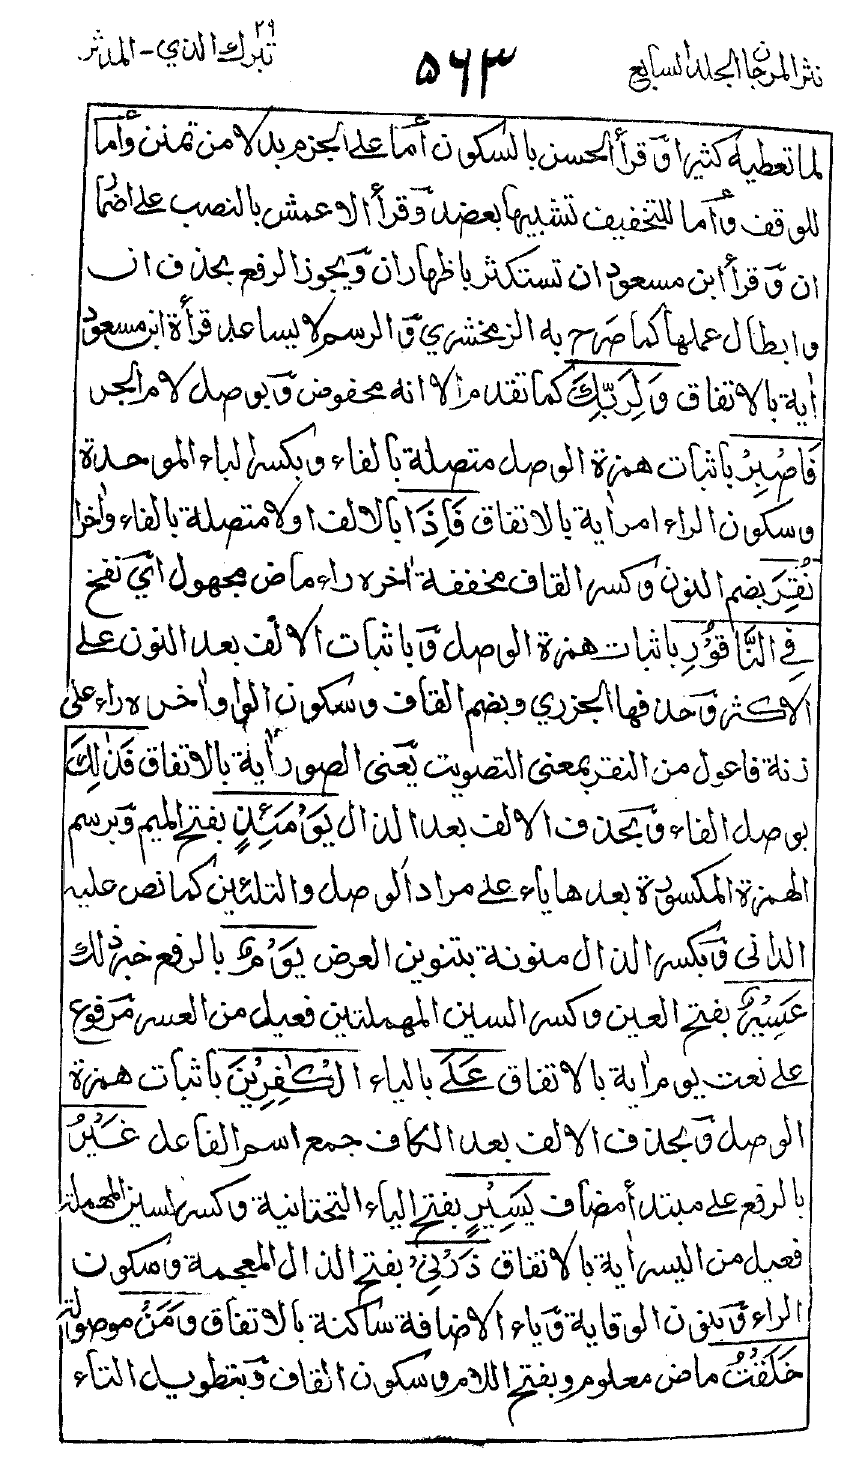 نثر المرجان الجلد السابع
٥٦٣
٢٩
تبرك الذي - المدثر
لما تعطيه كثيرا وقرأ الحسن بالسكون أما على الجزم بدلا من تمنن وأما
للوقف وأما للتخفيف تشبيها بعضد وقرأ الاعمش بالنصب على اضمار
ان وقرأ ابن مسعود ان تستكثر باظهار ان ويجوز الرفع بحذف ان
وابطال عملها كما صرح به الزمخشري والرسم لا يساعد قرأة ابن مسعود
أية بالاتفاق وَلِرَبِّكَ كما تقدم الا انه مخفوض وبوصل لام الجر
فَاصْبِرْ باثبات همزة الوصل متصلة بالفاء وبكسر الباء الموحدة
وسكون الراء امر أية بالاتفاق فَاِذَا بالالف اولا متصلة بالفاء وأخرا
نُقِرَ بضم النون وكسر القاف مخففة أخره راء ماض مجهول اي نفخ
فِي النَّاقُوْرِ باثبات همزة الوصل وباثبات الالف بعد النون على
الاكثر وحذفها الجزري وبضم القاف وسكون الواو وأخره راء على
زنة فاعول من النقر بمعنى التصويت يعني الصور أية بالاتفاق فَذٰلِكَ
بوصل الفاء وبحذف الالف بعد الذال يَوْمَئِذٍ بفتح الميم وبرسم
الهمزة المكسورة بعدها ياء على مراد الوصل والتليين كما نص عليه
الداني وبكسر الذال منونة بتنوين العوض يَوْمٌ بالرفع خبر ذلك
عَسِيْرٌ بفتح العين وكسر السين المهملتين فعيل من العسر مرفوع
على نعت يوم أية بالاتفاق عَلَى بالياء الْكٰفِرِيْنَ باثبات همزة
الوصل وبحذف الالف بعد الكاف جمع اسم الفاعل غَيْرُ
بالرفع على مبتدأ مضاف يَسِيْرٍ بفتح الياء التحتانية وكسر السين المهملة
فعيل من اليسر أية بالاتفاق ذَرْنِيْ بفتح الذال المعجمة وسكون
الراء وبنون الوقاية وياء الاضافة ساكنة بالاتفاق وَمَنْ موصولة
خَلَقْتُ ماض معلوم وبفتح اللام وسكون القاف وبتطويل التاء